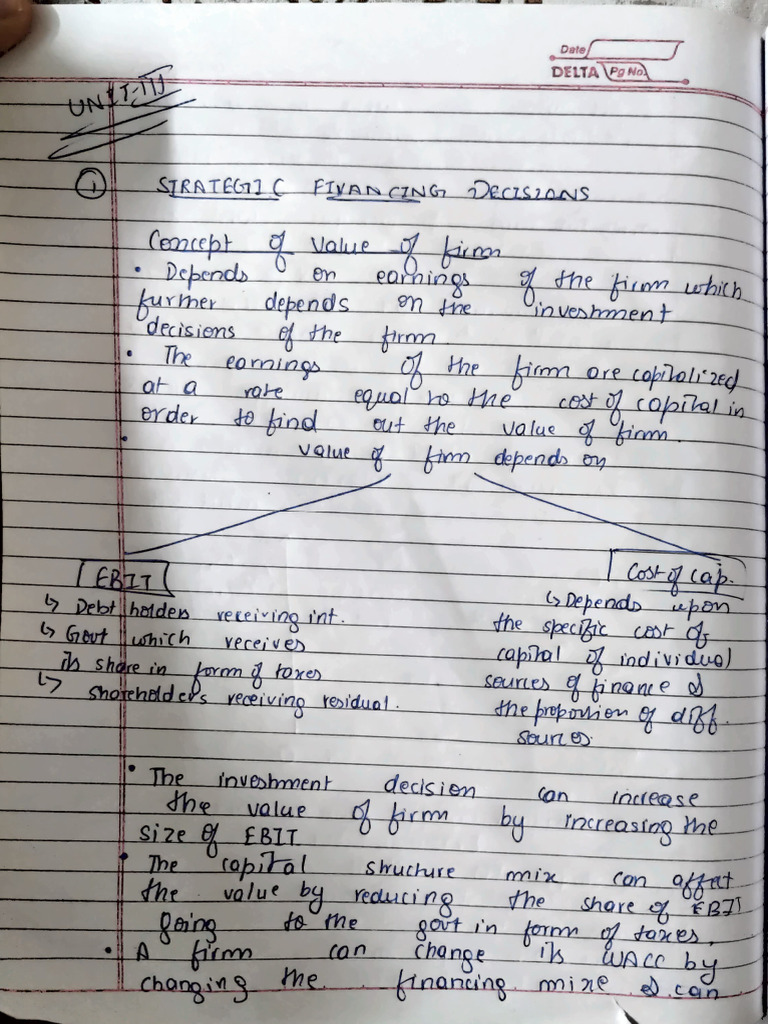 Date
DELTA Pg No.
UNIT-III
① STRATEGIC FINANCING DECISIONS
Concept of value of firm
• Depends on earnings of the firm which
further depends on the investment
decisions of the firm
• The earnings of the firm are capitalized
at a rate equal to the cost of capital in
order to find out the value of firm.
• value of firm depends on
EBIT
↳ Debt holders receiving int.
↳ Govt which receives
its share in form of taxes
↳ shareholders receiving residual.
Cost of cap.
↳ Depends upon
the specific cost of
capital of individual
sources of finance &
the proportion of diff.
sources.
• The investment decision can increase
the value of firm by increasing the
size of EBIT
• The capital structure mix can affect
the value by reducing the share of EBIT
going to the govt in form of taxes.
• A firm can change its WACC by
changing the financing mixe & can